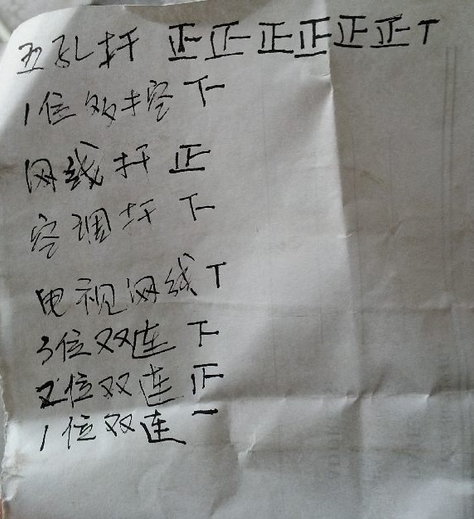 五孔扦 正正正正正正丅
1位双控下
网线扦 正
空调扦 下
电视网线丅
3位双连 下
2位双连 正
1位双连 一